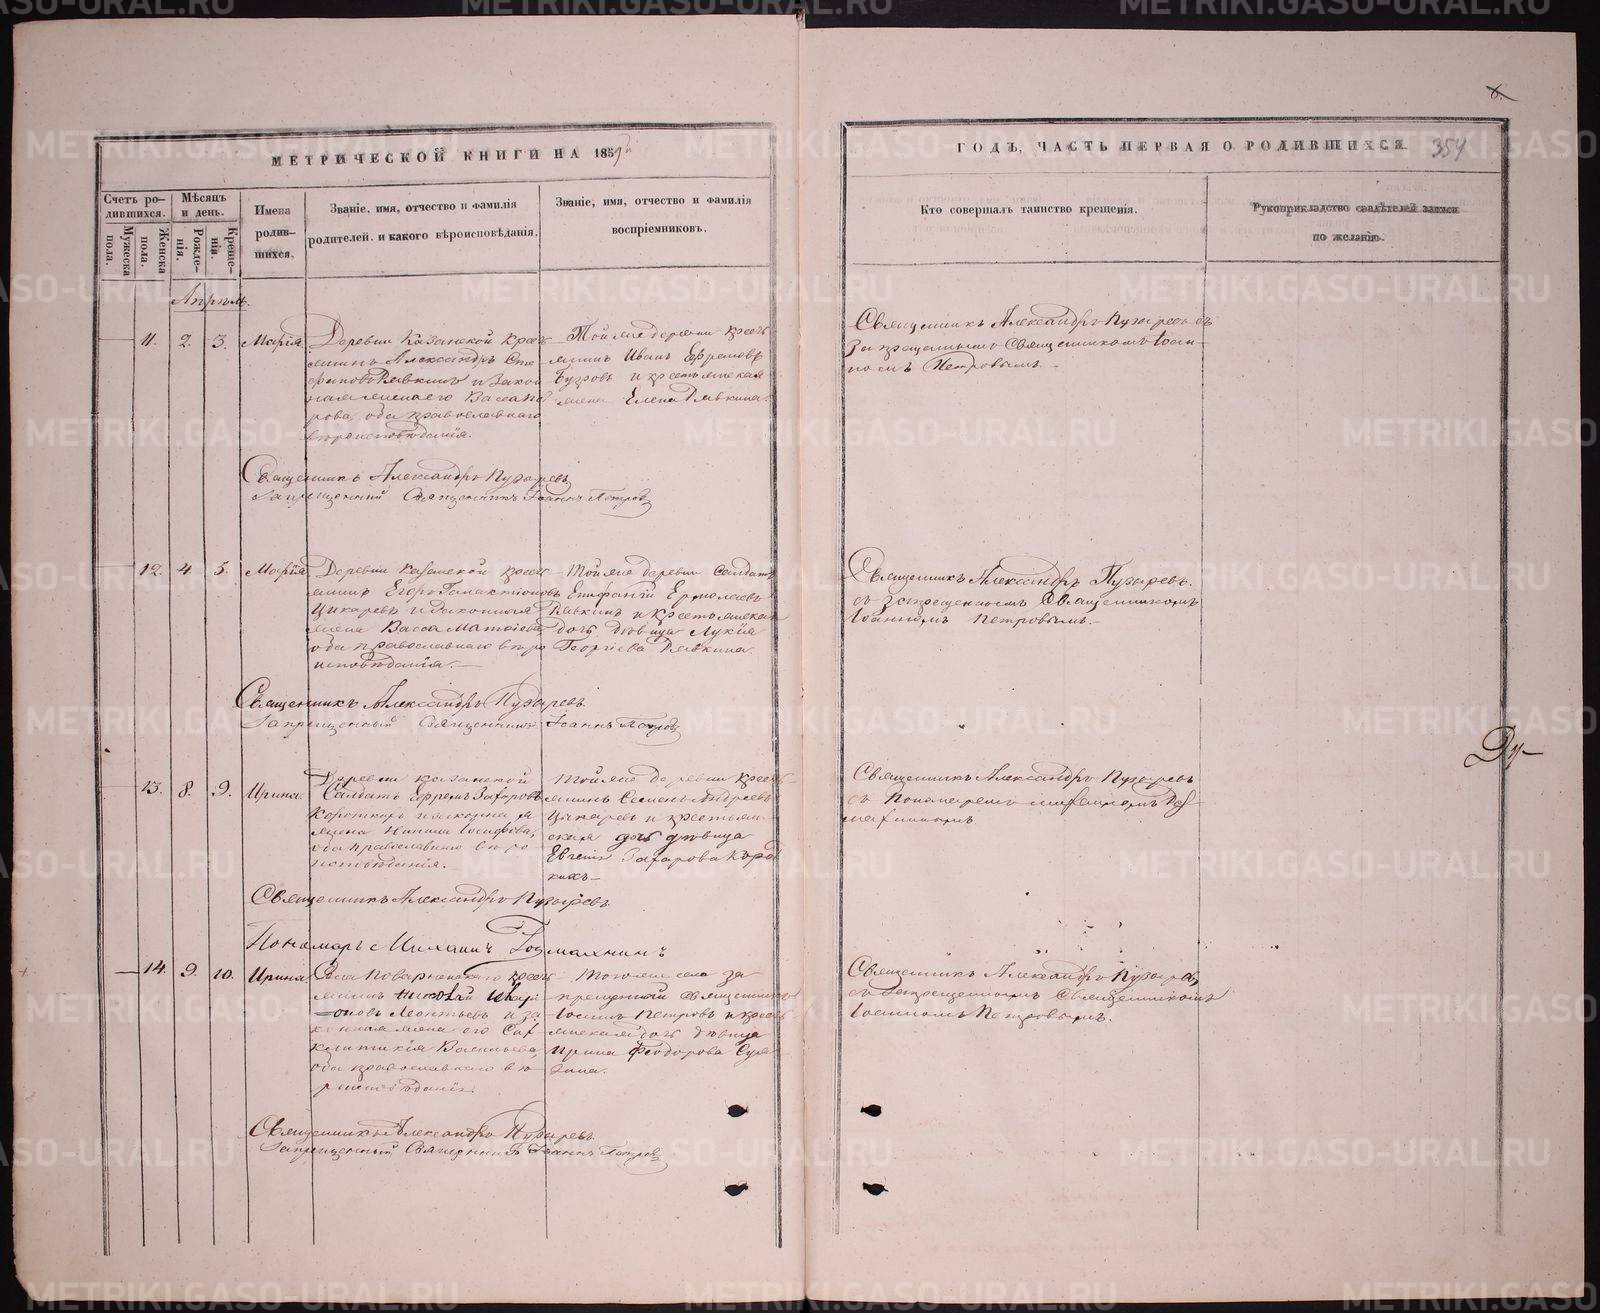 МЕТРИЧЕСКОЙ КНИГИ НА 1859й
ГОДЪ, ЧАСТЬ ПЕРВАЯ О РОДИВШИХСЯ.
354
Счетъ ро-
дившихся.
Мужеска
пола.
Женска
пола.
Мѣсяцъ
и день.
Рожде-
нія.
Креще-
нія.
Имена
родив-
шихся.
Званіе, имя, отчество и фамилія
родителей. и какого вѣроисповѣданія.
Званіе, имя, отчество и фамилія
воспріемниковъ.
Кто совершалъ таинство крещенія.
Рукоприкладство свидѣтелей записи
по желанію.
Апрѣль.
11. 2. 3. Марія
Деревни Казанской крест
янинъ Александръ Сте
фановъ Рявкинъ и закон
ная жена его Васса
рова, оба православнаго
вѣроисповѣданія.
Той же деревни крест
янинъ Иванъ Ефремовъ
и крестьянская
жена Елена Рявкина.
Священникъ Александръ Пузыревъ съ
запрещеннымъ Священникомъ Іоан
номъ Петровымъ.
Священникъ Александръ Пузыревъ
Запрещенный Священникъ Іоаннъ Петровъ
12. 4. 5. Марія
Деревни Казанской крест
янинъ Егоръ Галактіоновъ
Цикаревъ и законная
жена Васса Матвіева
оба православнаго вѣро
исповѣданія.
Той же деревни Солдатъ
Епифаній Ермолаевъ
Рявкинъ и крестьянская
дочь дѣвица Лукія
Георгіева Рявкина.
Священникъ Александръ Пузыревъ.
съ запрещеннымъ Священникомъ
Іоанномъ Петровымъ.
Священникъ Александръ Пузыревъ.
Запрещенный Священникъ Іоаннъ Петровъ
13. 8. 9. Ирина.
Деревни Казанской
Солдатъ Ефремъ Захаровъ
жена Іосифова,
оба православнаго вѣро
исповѣданія.
Той же деревни крест
янинъ Семенъ Андреевъ
Цикаревъ и крестьян
ская дочь дѣвица
Евгенія Захарова Корот
кихъ
Священникъ Александръ Пузыревъ
съ Пономаремъ Михаиломъ

Священникъ Александръ Пузыревъ.
Пономарь Михаилъ
14. 9. 10. Ирина
Села крест
янинъ Николай
Леонтьевъ и за
конная жена его
Васильева,
оба православнаго вѣ
роисповѣданія.
Того же села за
прещенный Священникъ
Іоаннъ Петровъ и крест
янская дочь дѣвица
Ирина Феодорова
Священникъ Александръ Пузыревъ,
съ запрещеннымъ Священникомъ
Іоанномъ Петровымъ.
Священникъ Александръ Пузыревъ.
Запрещенный Священникъ Іоаннъ Петровъ
METRIKI.GASO-URAL.RU